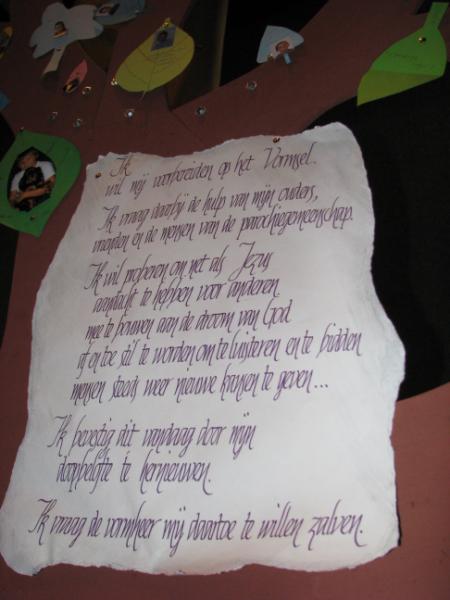 Ik
wil mij voorbereiden op het Vormsel.
Ik vraag daarbij de hulp van mijn ouders,
vrienden en de mensen van de parochiegemeenschap.
Ik wil proberen om net als Jezus
aandacht te hebben voor anderen
mee te bouwen aan de droom van God
af en toe stil te worden om te luisteren en te bidden
mensen steeds weer nieuwe kansen te geven...
Ik bevestig dit vandaag door mijn
doopbelofte te hernieuwen.
Ik vraag de vormheer mij daartoe te willen zalven.